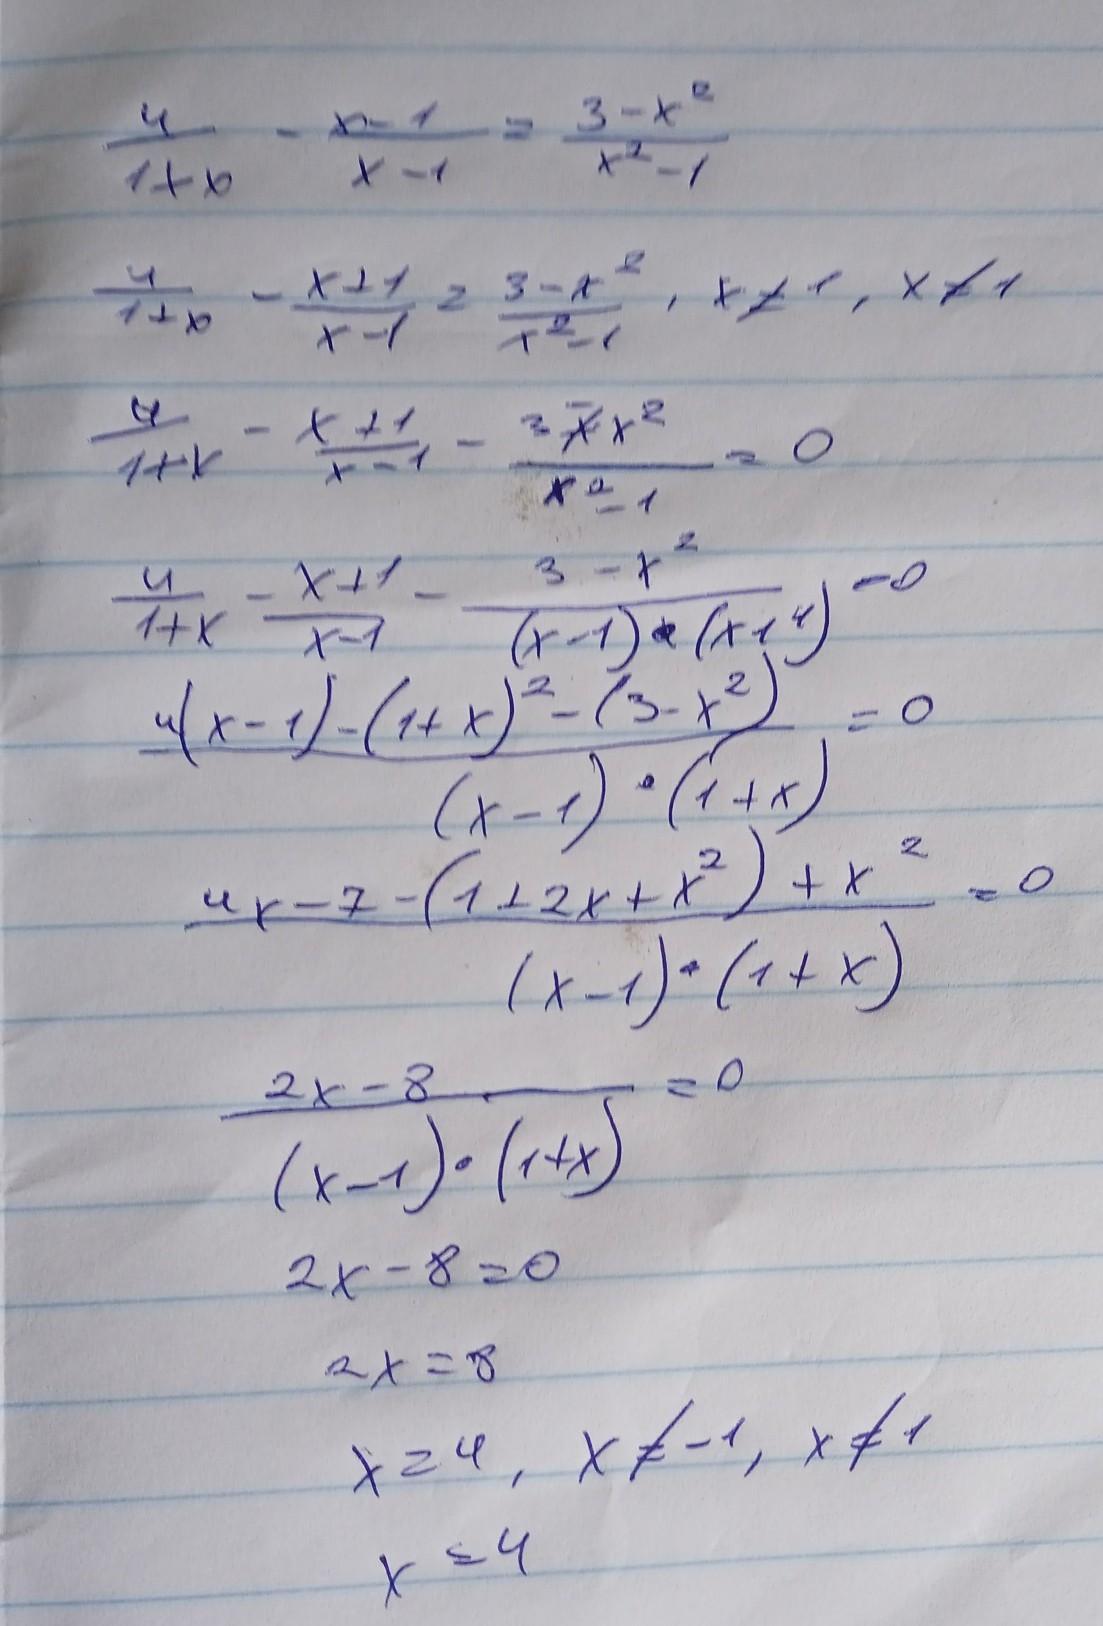 4/(1+x) - (x-1)/(x-1) = (3-x²)/(x²-1)
4/(1+x) - (x+1)/(x-1) = (3-x²)/(x²-1), x≠1, x≠1
4/(1+x) - (x+1)/(x-1) - (3-x²)/(x²-1) = 0
4/(1+x) - (x+1)/(x-1) - (3-x²)/((x-1)•(x+1)) = 0
(4(x-1)-(1+x)²-(3-x²))/((x-1)•(1+x)) = 0
(4x-7-(1+2x+x²)+x²)/((x-1)•(1+x)) = 0
(2x-8)/((x-1)•(1+x)) = 0
2x-8=0
2x=8
x=4, x≠-1, x≠1
x=4